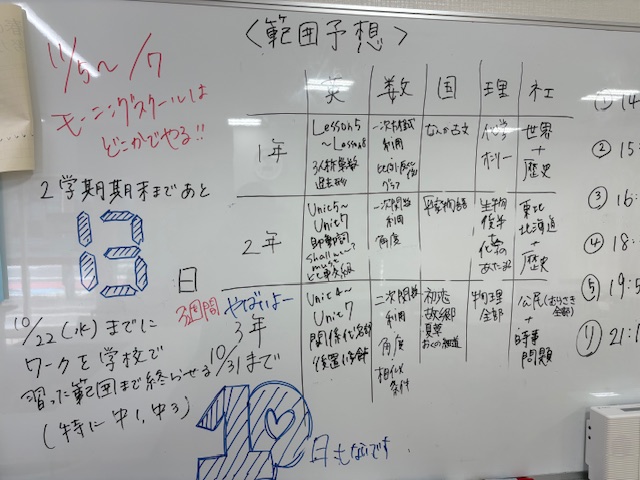 〈範囲予想〉
11/5〜/7
モーニングスクールは
どこかでやる!!
2学期期末まであと
13
日
10/22(水)までに
ワークを学校で
習った範囲まで終わらせる
(特に中1、中3)
英 数 国 理 社
1年
Lesson5
〜Lesson8
利用
グラフ
なんか古文
化学
オンリー
世界
+
歴史
2年
Unit5〜
Unit7
一次関数
利用
角度
平家物語
生物
東北
北海道
+
歴史
3週間 やばいよー
3年
10/31まで
Unit4〜
Unit7
関係代名詞
後置修飾
二次関数
利用
角度
相似
条件
初恋
故郷
夏草
おくの細道
物理
全部
公民(むらさき
全部)
+
時事
問題
19
日もないです
① 14
② 15:
③ 16:
④ 18:
⑤ 19:5
21: